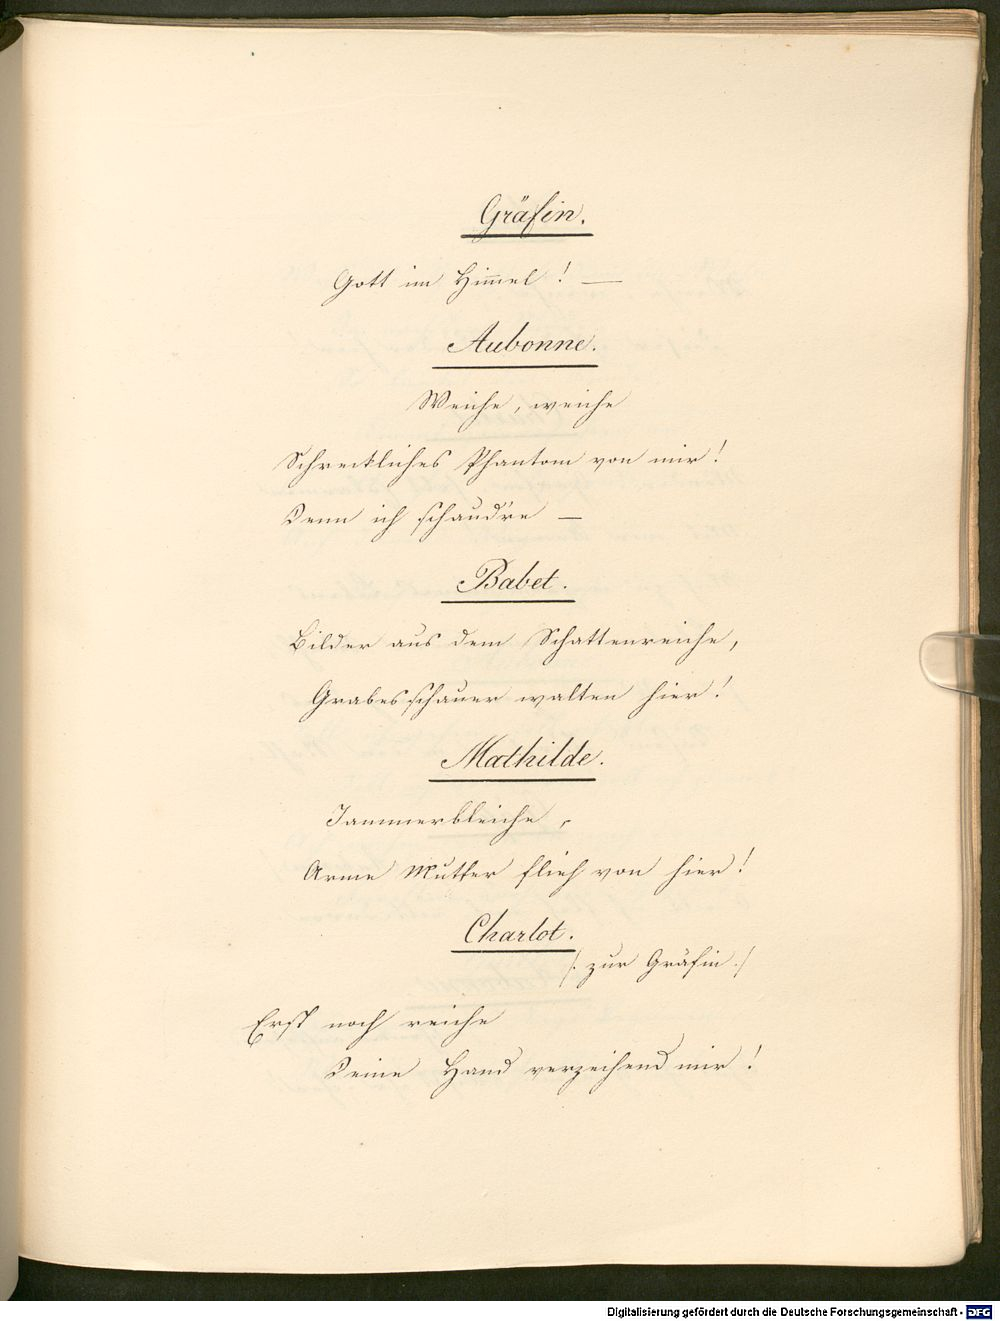 Gräfin.
Gott im Him̅el! —
Aubonne.
Weiche, weiche
Schreckliches Phantom von mir!
Denn ich schaud're —
Babet.
Bilder aus dem Schattenreiche,
Grabesschauer walten hier!
Mathilde.
Jammerbleiche,
Arme Mutter flieh von hier!
Charlot.
/: zur Gräfin :/
Erst noch reiche
Deine Hand verzeihend mir!
Digitalisierung gefördert durch die Deutsche Forschungsgemeinschaft - DFG